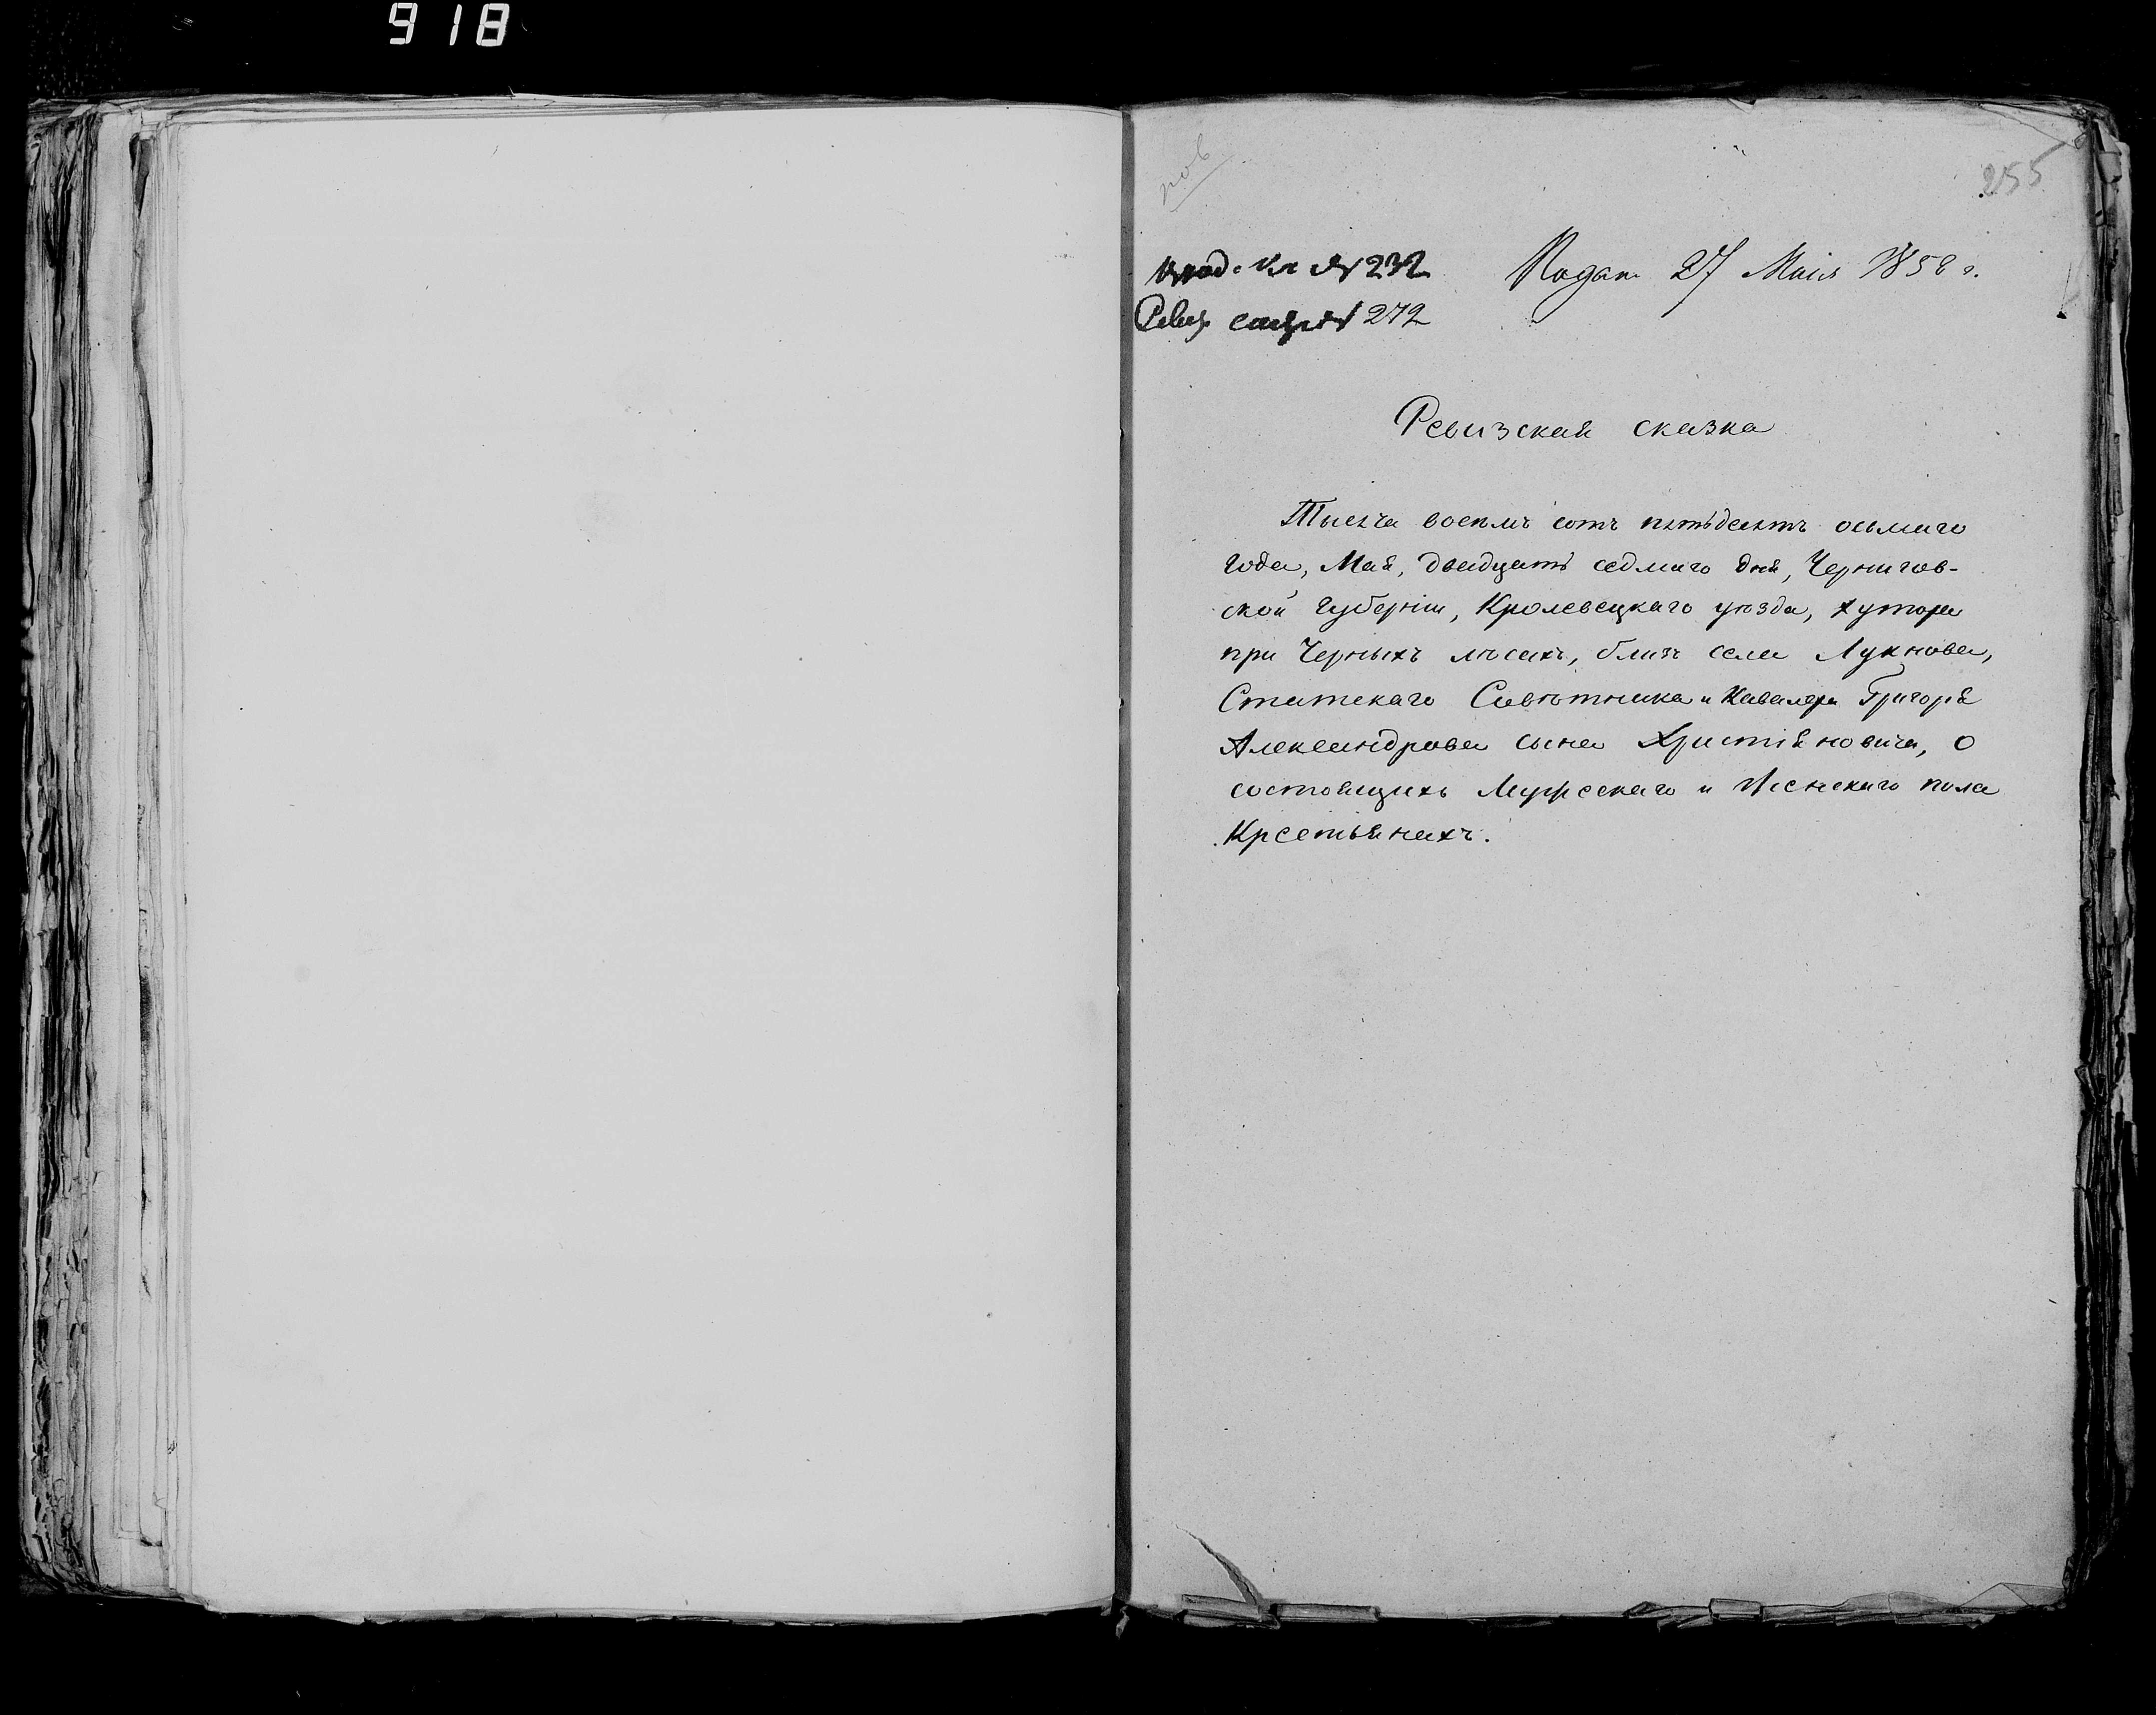 918
255
№ 232
Подан. 27 Маія 1858 г.
№ 272
Ревизская сказка
Тысяча восемь сотъ пятьдесятъ осьмаго
года, Мая, двадцать седмаго дня, Чернигов-
ской Губерніи, Кролевецкаго уѣзда, хутора
при Черныхъ лѣсахъ, близъ села Лукнова,
Статскаго Совѣтника и Кавалера Григорія
Александрова сына Христіановича, о
состоящихъ Мужескаго и Женскаго пола
Крестьянахъ.